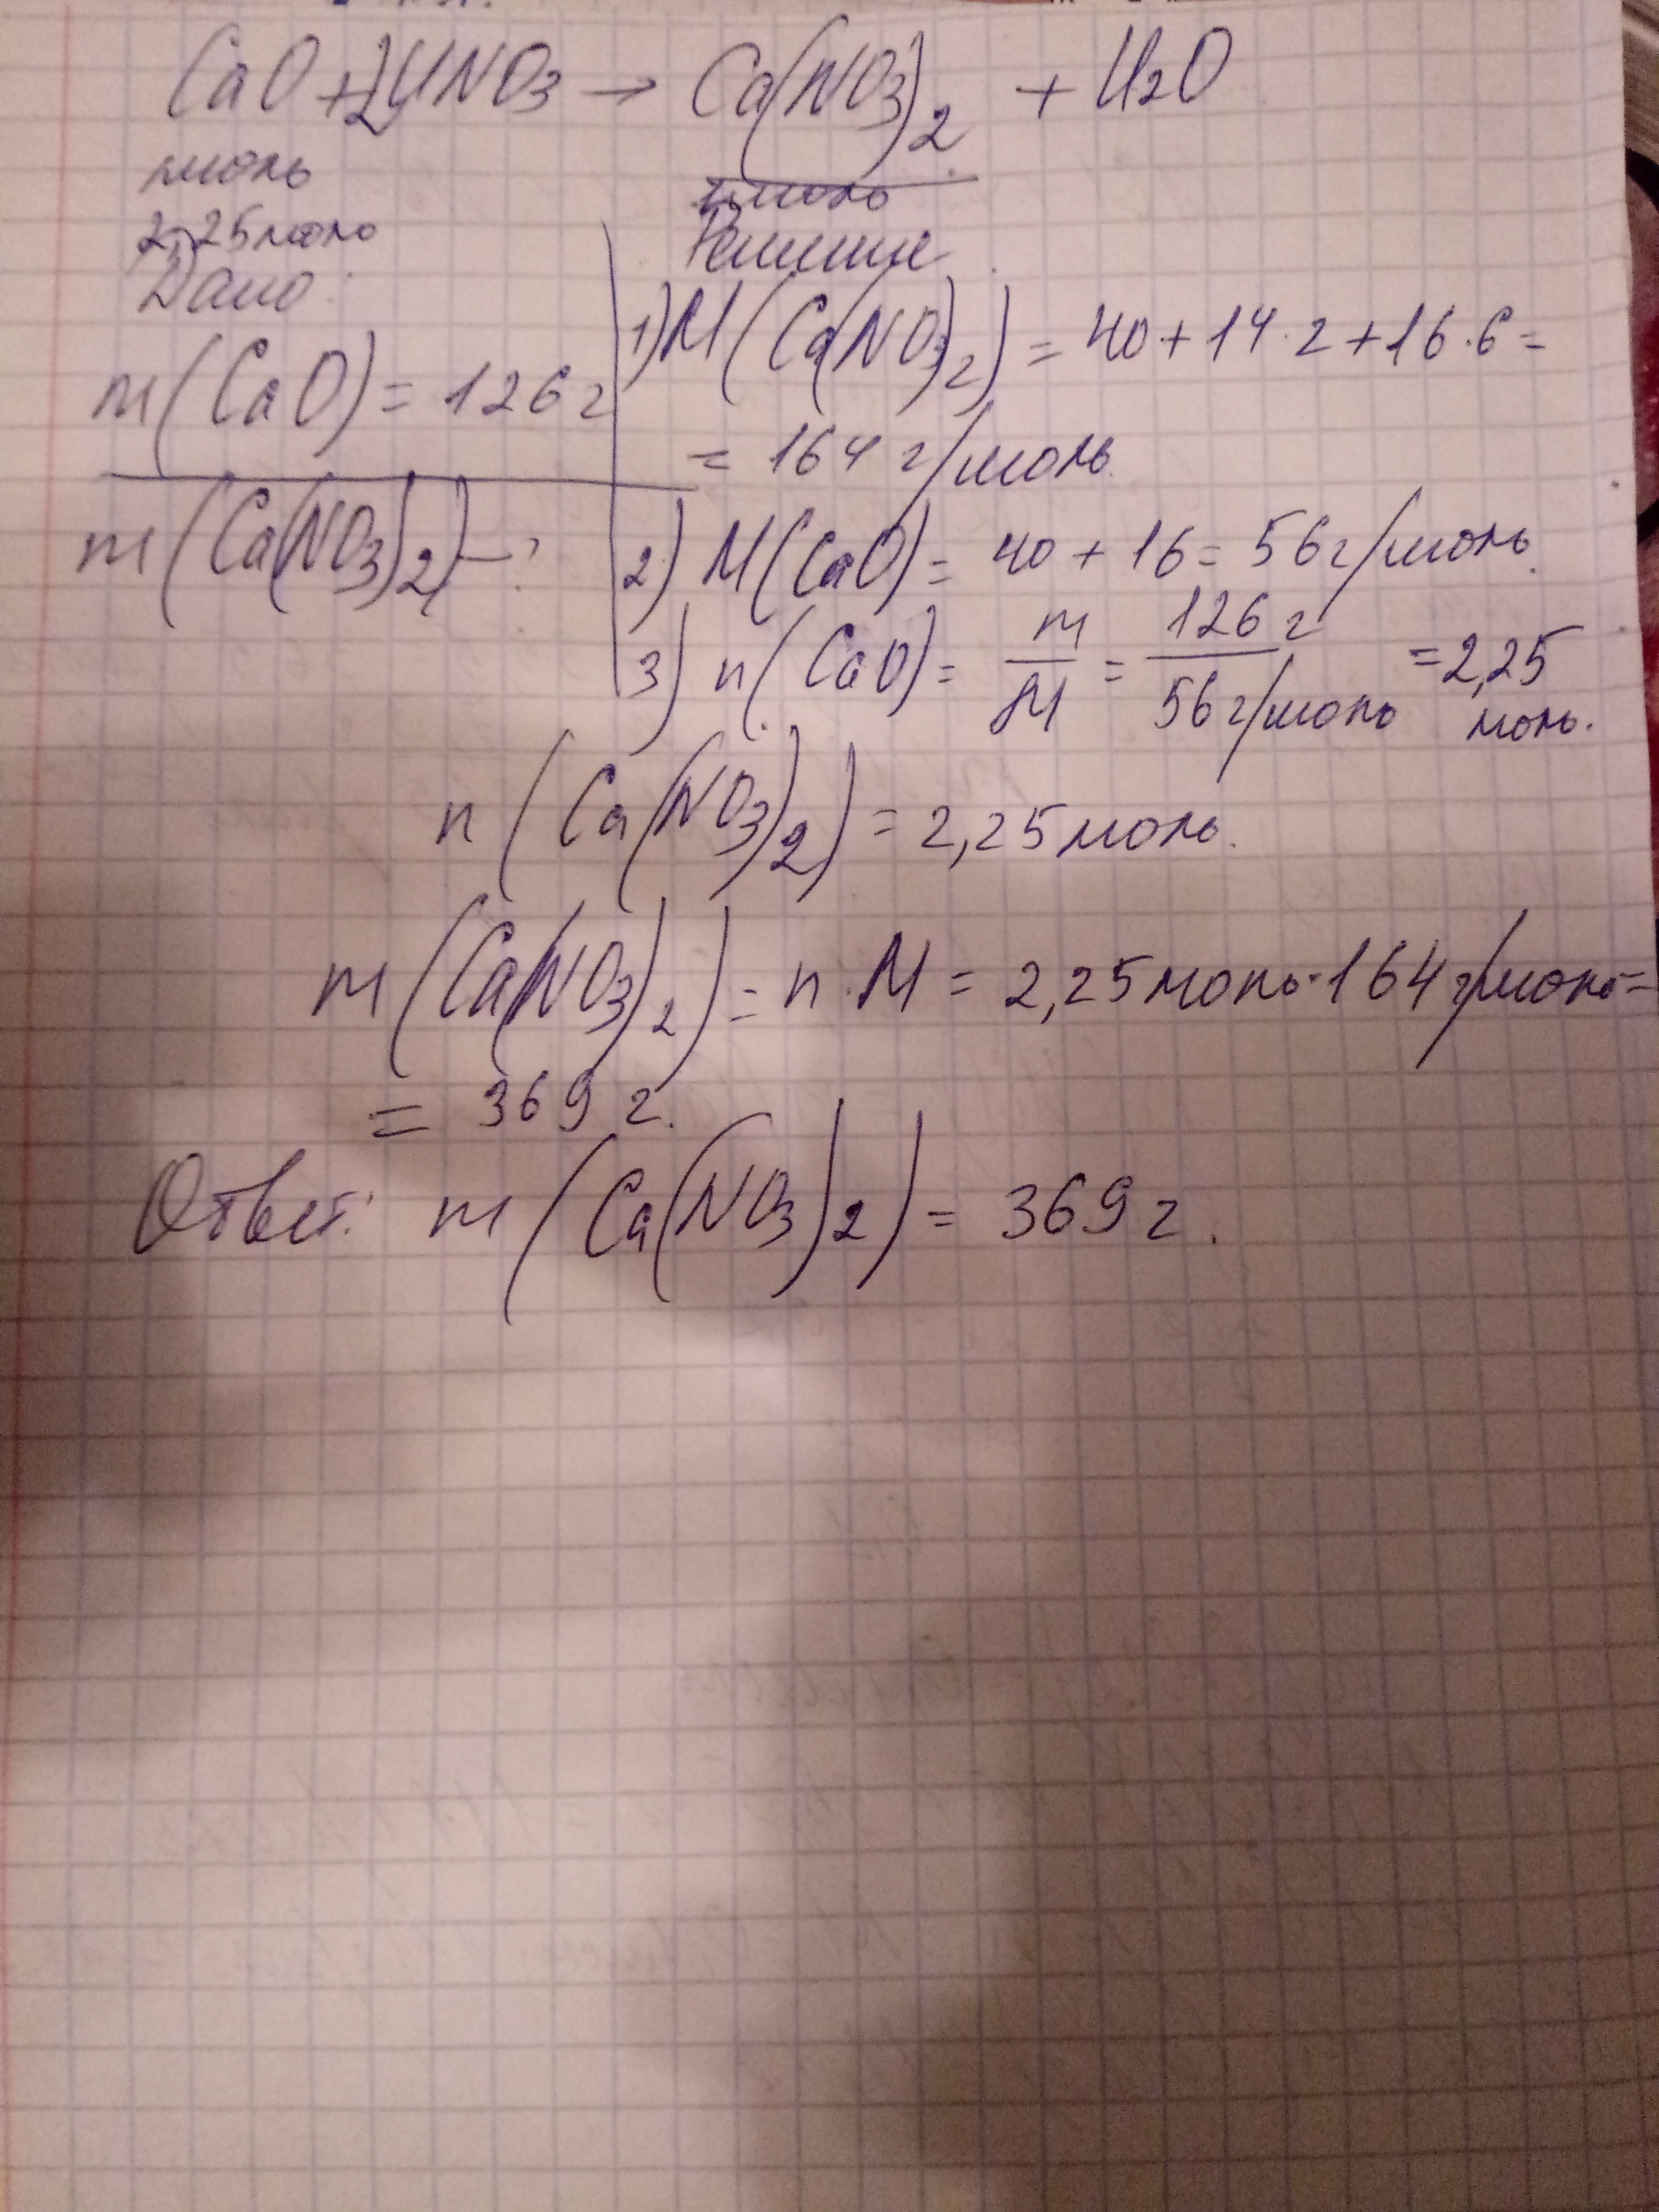 CaO + 2HNO3 → Ca(NO3)2 + H2O
1моль 1моль
2,25моль
Дано: Решение
m(CaO) = 126 г
m(Ca(NO3)2) - ?
1) M(Ca(NO3)2) = 40 + 14 · 2 + 16 · 6 =
= 164 г/моль.
2) M(CaO) = 40 + 16 = 56 г/моль.
3) n(CaO) = m/M = 126 г/56 г/моль = 2,25 моль.
n(Ca(NO3)2) = 2,25 моль.
m(Ca(NO3)2) = n · M = 2,25 моль · 164 г/моль =
= 369 г.
Ответ: m(Ca(NO3)2) = 369 г.